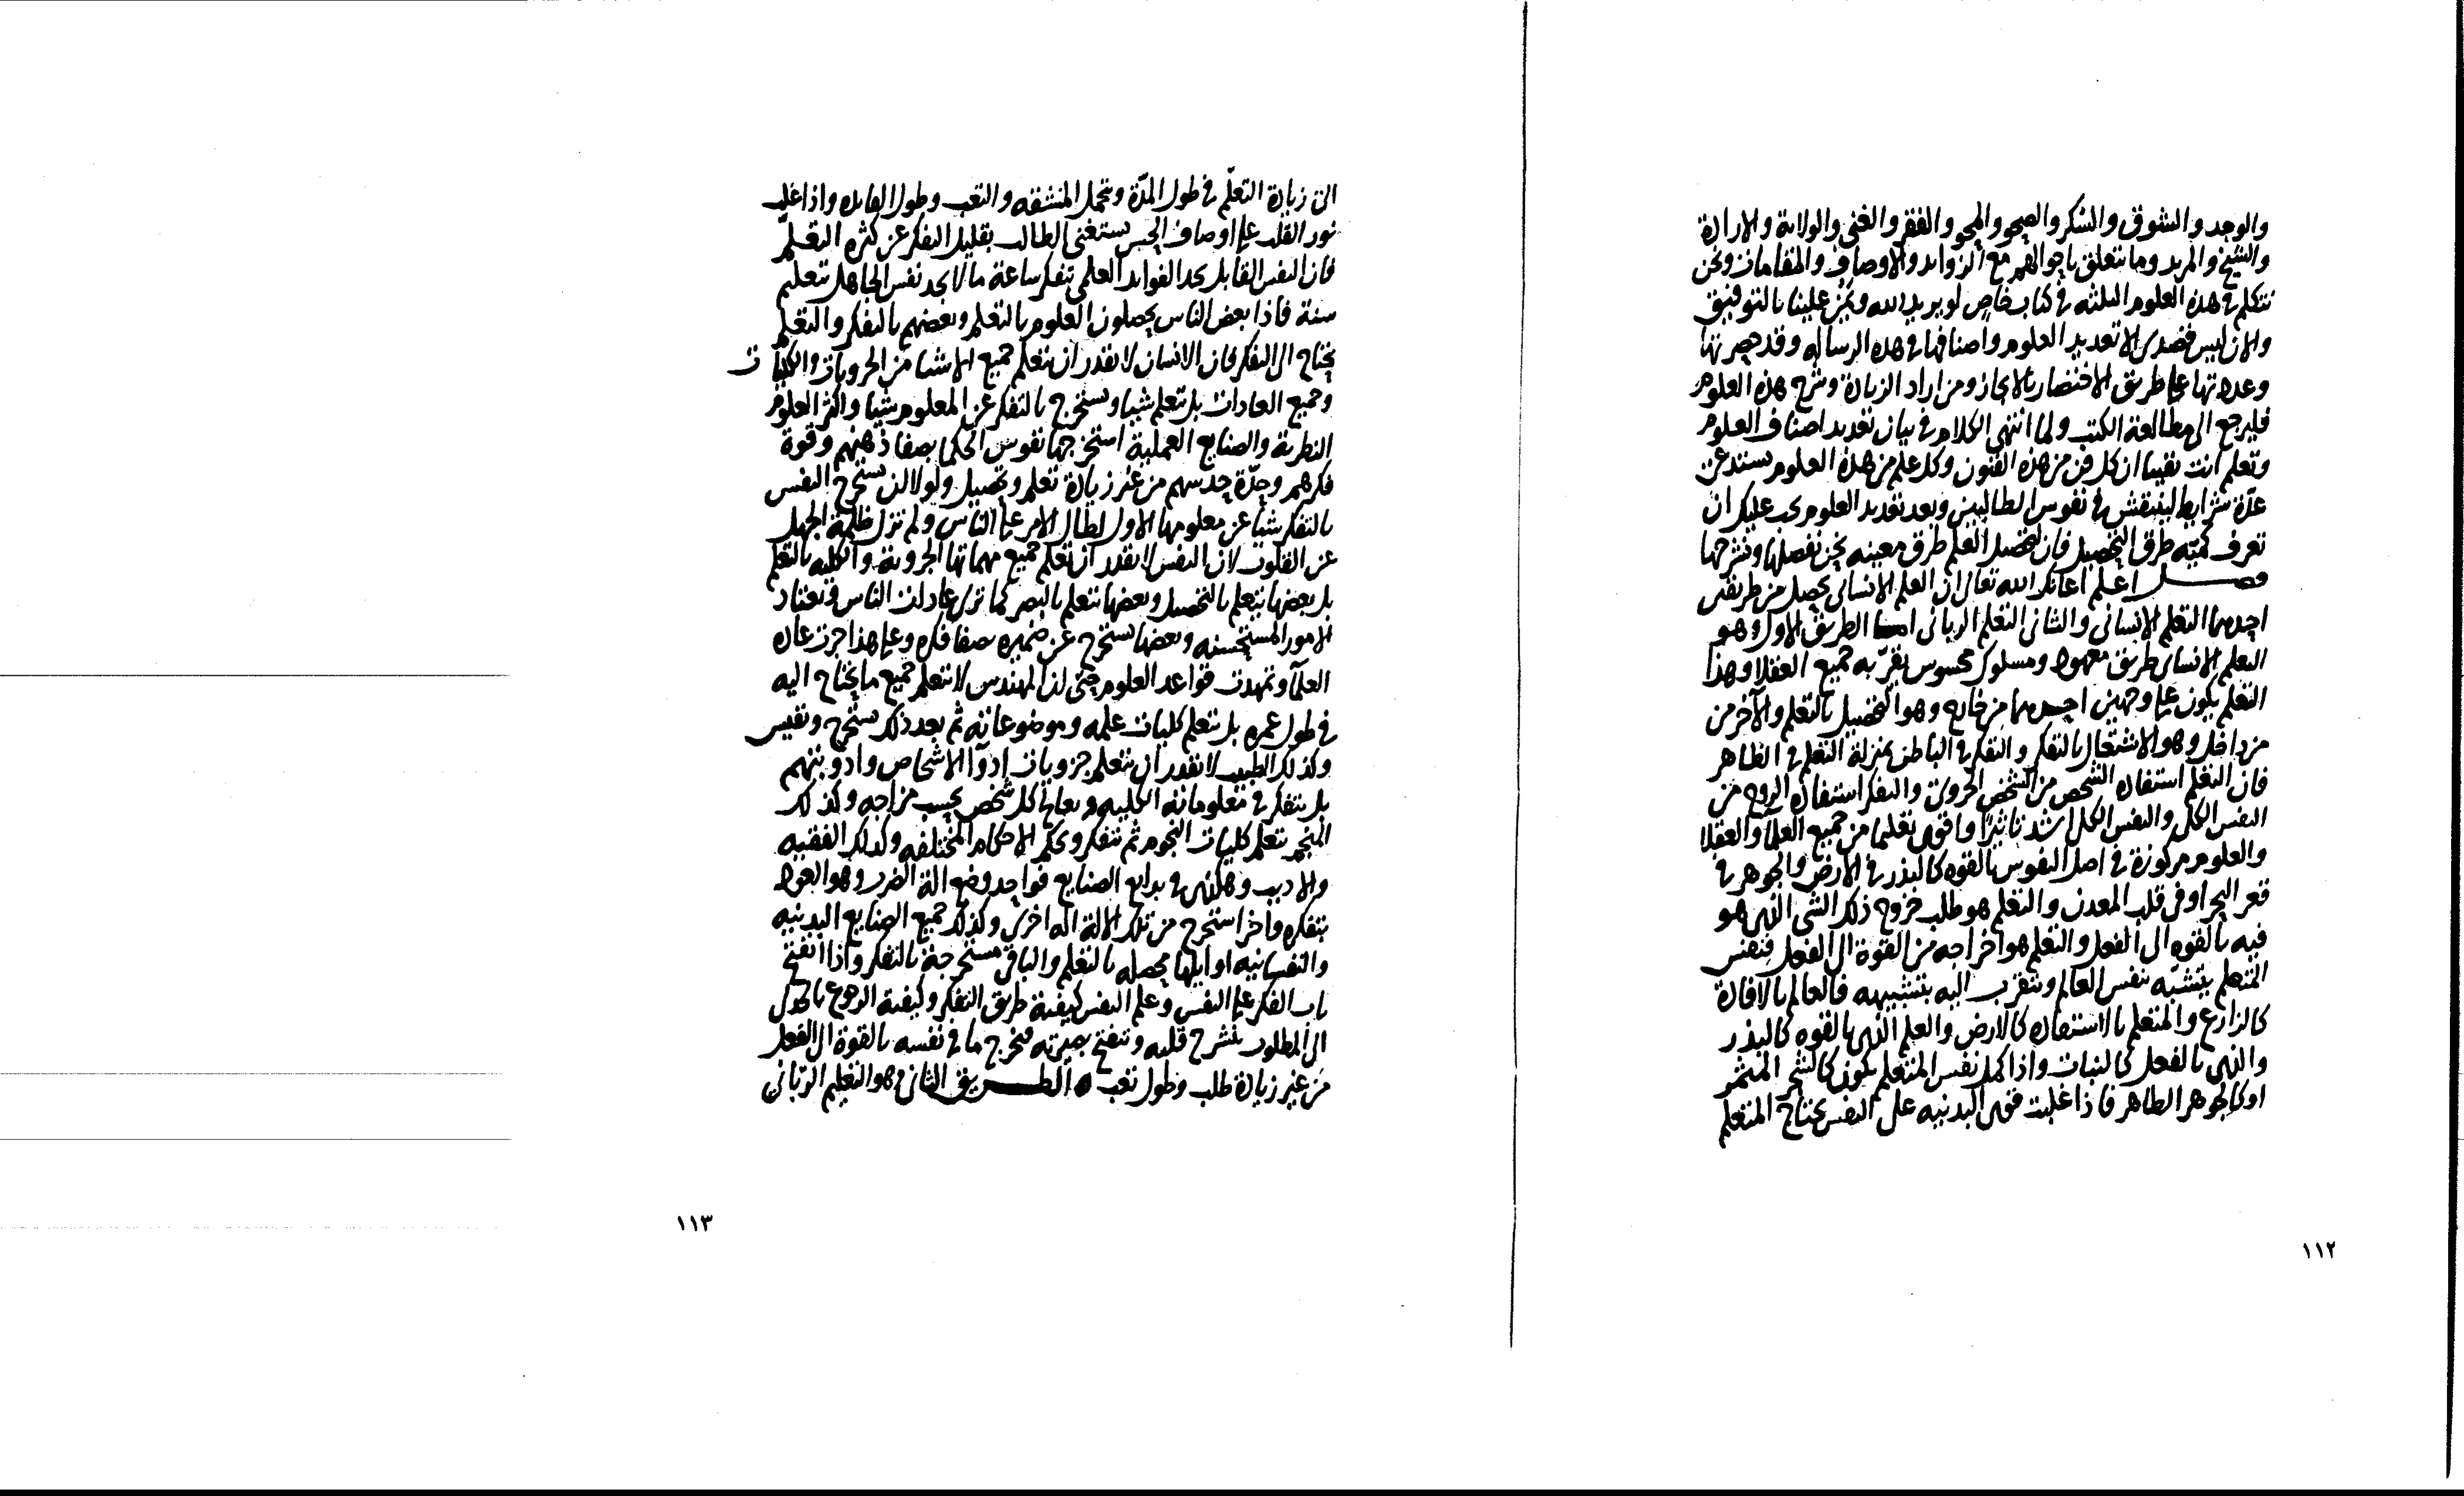 والوجد والشوق والسكر والصحو والمحو والفقر والغنى والولاية والارادة
والشيخ والمريد وما يتعلق باحوالهم مع الزوايد والاوصاف والمقامات ونحن
نتكلم في هذه العلوم الثلثه في كتاب خاص لو يريد الله ويمن علينا بالتوفيق
والان ليس قصدى الا تعديد العلوم واصنافها في هذه الرساله وقد حصرتها
وعددتها على طريق الاختصار بالايجاز ومن اراد الزيادة وشرح هذه العلوم
فليرجع الى مطالعة الكتب ولما انتهى الكلام في بيان تعديد اصناف العلوم
وتعلم انت يقينا ان كل فن من هذه الفنون وكل علم من هذه العلوم يستدعى
عدّة شرايط لينتقش في نفوس الطالبين وبعد تعديد العلوم يجب عليك ان
تعرف كميّه طرق التحصيل فان لتحصيل العلم طرق معينه نحن نفصلها ونشرحها
فصل اعلم اعانك الله تعالى ان العلم الانسانى يحصل من طريقين
احدهما التعلم الانسانى والثانى التعلم الربانى اما الطريق الاول وهو
التعلم الانسانى طريق معهود ومسلوك محسوس يقرّ به جميع العقلا وهذا
التعلم يكون على وجهين احدهما من خارج وهو التحصيل بالتعلم والآخر من
من داخل وهو الاشتغال بالتفكر والتفكر في الباطن بمنزلة التعلم في الظاهر
فان التعلم استفاده الشخص من الشخص الجزوى والتفكر استفاده الروح من
النفس الكلى والنفس الكلى اشد تاثيرًا واقوى تعليما من جميع العلمآ والعقلا
والعلوم مركوزة في اصل النفوس بالقوه كالبذر في الارض والجوهر في
قعر البحر او في قلب المعدن والتعلم هو طلب خروج ذلك الشى الذى هو
فيه بالقوه الى الفعل والتعلم هو اخراجه من القوة الى الفعل فنفس
المتعلم يتشبّه بنفس العالم ويتقرب اليه بتشبيهه فالعالم بالافادة
كالزارع والمتعلم بالاستفاده كالارض والعلم الذى بالقوه كالبذر
والذى بالفعل كالنبات واذا كمل نفس المتعلم يكون كالشجر المثمر
او كالجوهر الظاهر فاذا غلبت قوى البدنيه على النفس يحتاج المتعلم
١١٢
الى زيادة التعلّم في طول المدّة وتحمل المشقه والتعب وطول الفايده واذا غلب
نور القلب على اوصاف الحس يستغنى الطالب بقليل التفكر عن كثره التعلّم
فان النفس القابل يجد الفوايد العلمى بتفكر ساعة ما لا يجد نفس الجاهل بتعليم
سنة فاذا بعض الناس يحصلون العلوم بالتعلم وبعضهم بالتفكر والتعلم
يحتاج الى التفكر فان الانسان لا يقدر ان يتعلم جميع الاشيا من الجزويات والكليات
وجميع العادات بل يتعلم شيا ويستخرج بالتفكر عن المعلوم شيا واكثر العلوم
النظرية والصنايع العملية استخرجها نفوس الحكما بصفا ذهنهم وقوة
فكرهم وحدّة حدسهم من غير زيادة تعلم وتحصيل ولولا ان يستخرج النفس
بالتفكر شيا عن معلومها الاول لطال الامر على الناس ولم تزل ظلمة الجهل
عن القلوب لان النفس لا يقدر ان تعلم جميع مهماتها الجزوية والكليه بالتعلم
بل بعضها يتعلم بالتحصيل وبعضها يتعلم بالبصر كما ترى عادات الناس ويعتاد
الامور المستحسنه وبعضها يستخرج عن ضميره بصفا فكره وعلى هذا جرت عاده
العلمآ وتمهدت قواعد العلوم حتى ان المهندس لا يتعلم جميع ما يحتاج اليه
في طول عمره بل يتعلم كليات علمه وموضوعاته ثم بعد ذلك يستخرج ويقيس
وكذلك الطبيب لا يقدر ان يتعلم جزويات ادوآ الاشخاص وادويتهم
بل يتفكر في معلوماته الكليه ويعالج كل شخص بحسب مزاجه وكذلك
المنجم يتعلم كليات النجوم ثم يتفكر ويحكم الاحكام المختلفه وكذلك الفقيه
والاديب وهكذى في بدايع الصنايع فواحد وضع الة الضرب وهو العود
بتفكره واخر استخرج من تلك الالة اله اخرى وكذلك جميع الصنايع البدنيه
والنفسانيه اوايلها محصله بالتعلم والباقى مستخرجة بالتفكر واذا انفتح
باب الفكر على النفس وعلم النفس كيفية طريق التفكر وكيفية الرجوع بالحول
الى المطلوب ينشرح قلبه وتنفتح بصيرته فيخرج ما في نفسه بالقوة الى الفعل
من غير زيادة طلب وطول تعب ه الطريق الثانى وهو التعليم الربّانى
١١٣